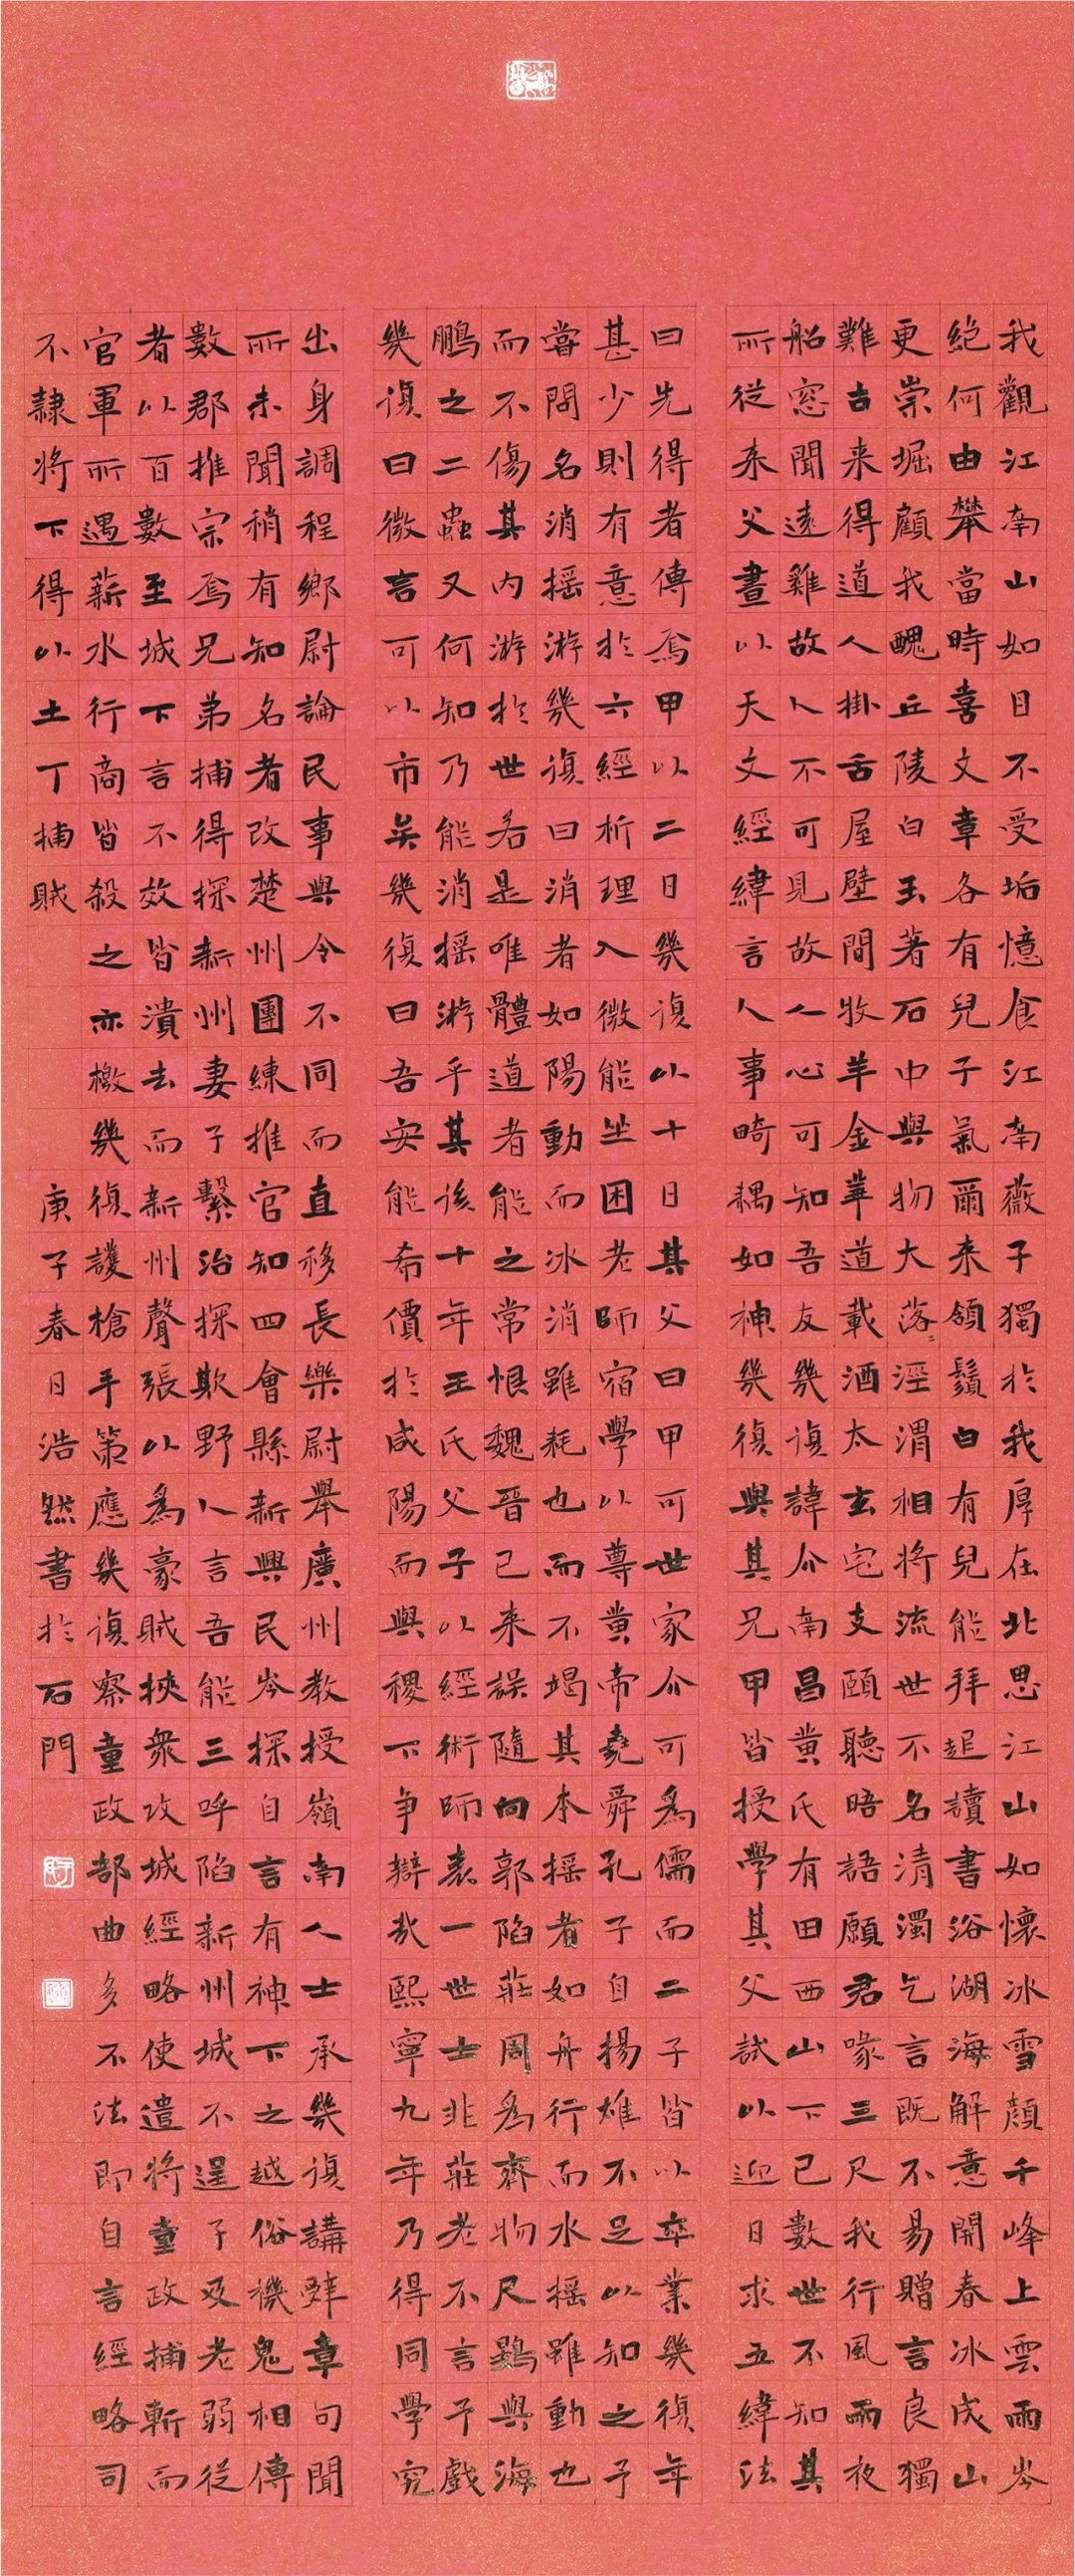 我觀江南山如目不受垢憶食江南薇子獨於我厚在北思江山如懷冰雪顔千峰上雲雨岑
絕何由攀當時喜文章各有兒子氣爾来領鬚白有兒能拜起讀書浴湖海解意開春冰成山
更崇堀顧我醜丘陵白玉著石中與物大落落涇渭相將流世不名清濁乞言既不易贈言良獨
難古来得道人掛舌屋壁間牧羊金華道載酒太玄宅支頤聽晤語願君喙三尺我行風雨夜
船窓聞遠雞故人不可見故人心可知吾友幾復諱介南昌黄氏有田西山下已數世不知其
所從来父晝以天文經緯言人事畸耦如神幾復與其兄甲皆授學其父試以迎日求五緯法
曰先得者傳焉甲以二日幾復以十日其父曰甲可世家介可爲儒而二子皆以卒業幾復年
甚少則有意於六經析理入微能坐困老師宿學以尊黄帝堯舜孔子自揚雄不足以知之予
嘗問名消摇游幾復曰消者如陽動而冰消雖耗也而不竭其本摇者如舟行而水摇雖動也
而不傷其内游於世若是唯體道者能之常恨魏晋已来誤隨向郭陷莊周爲齊物尺鷃與海
鵬之二蟲又何知乃能消摇游乎其後十年王氏父子以經術師表一世士非莊老不言予戲
幾復曰微言可以市矣幾復曰吾安能希價於咸陽而與稷下争辯哉熙寧九年乃得同學究
出身調程鄉尉論民事與令不同而直移長樂尉舉廣州教授嶺南人士承幾復講辭章句聞
所未聞稍有知名者改楚州團練推官知四會縣新興民岑探自言有神下之越俗機鬼相傳
數郡推宗焉兄弟捕得探新州妻子繫治探欺野人言吾能三呼陷新州城不逞子及老弱從
者以百數至城下言不效皆潰去而新州聲張以爲豪賊挾衆攻城經略使遣將童政捕斬而
官軍所遇薪水行商皆殺之亦檄幾復護槍手策應幾復察童政部曲多不法即自言經略司
不隸將下得以土丁捕賊
庚子春日浩然書於石門